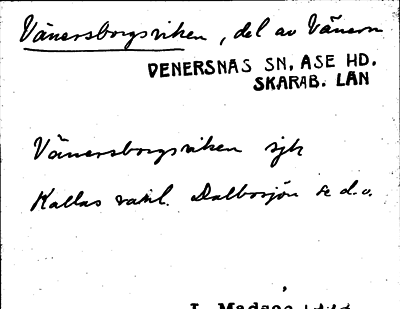 Vänersborgsviken, del av Vänern
VENERSNAS SN, ASE HD.
SKARAB. LAN
Vänersborgsviken sjh
Kallas vanl. Dalbosjön se d.o.